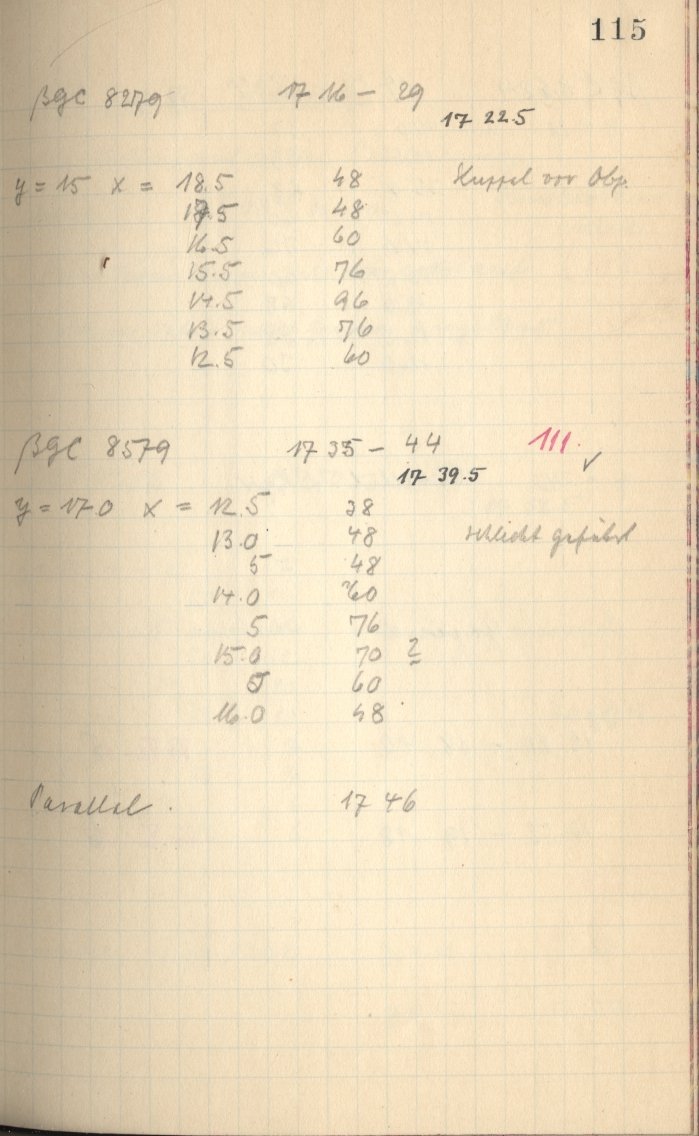 115
βGC 8279 17 16 – 29
17 22.5
y = 15 x = 18.5 48 Kuppel vor Obj.
17.5 48
16.5 60
15.5 76
14.5 96
13.5 76
12.5 60
βGC 8579 17 35 – 44 111. ✓
17 39.5
y = 17.0 x = 12.5 38
13.0 48 schlecht geführt
5 48
14.0 60
5 76
15.0 70 ?
5 60
16.0 48
Parallel. 17 46